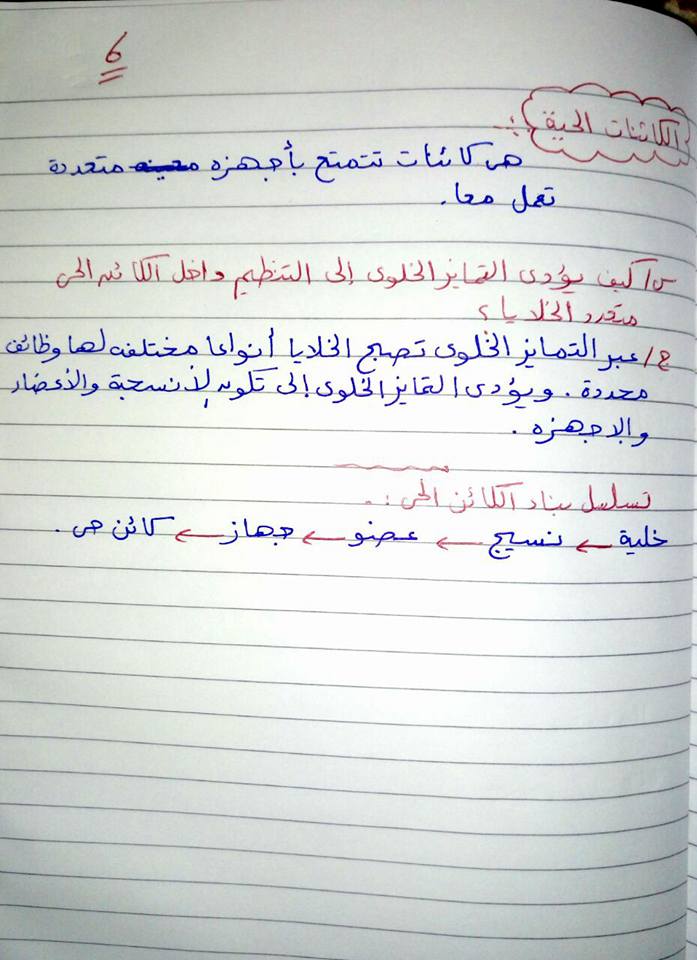 6
الكائنات الحية :.
هى كائنات تتمتع بأجهزه متعددة
تعمل معا.
س/ كيف يؤدى التمايز الخلوى إلى التنظيم داخل الكائن الحى
متعدد الخلايا ؟
ج/ عبر التمايز الخلوى تصبح الخلايا أنواعا مختلفه لها وظائف
محددة . ويؤدى التمايز الخلوى إلى تكوين الأنسجة والأعضاء
والاجهزه .
تسلسل بناء الكائن الحى :.
خلية ← نسيج ← عضو ← جهاز ← كائن حى .